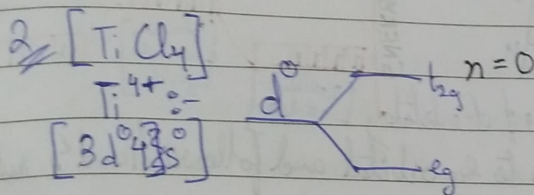 2 [TiCl4]
Ti⁴⁺ :-
[3d⁰4s⁰]
d⁰
t₂g n=0
eg